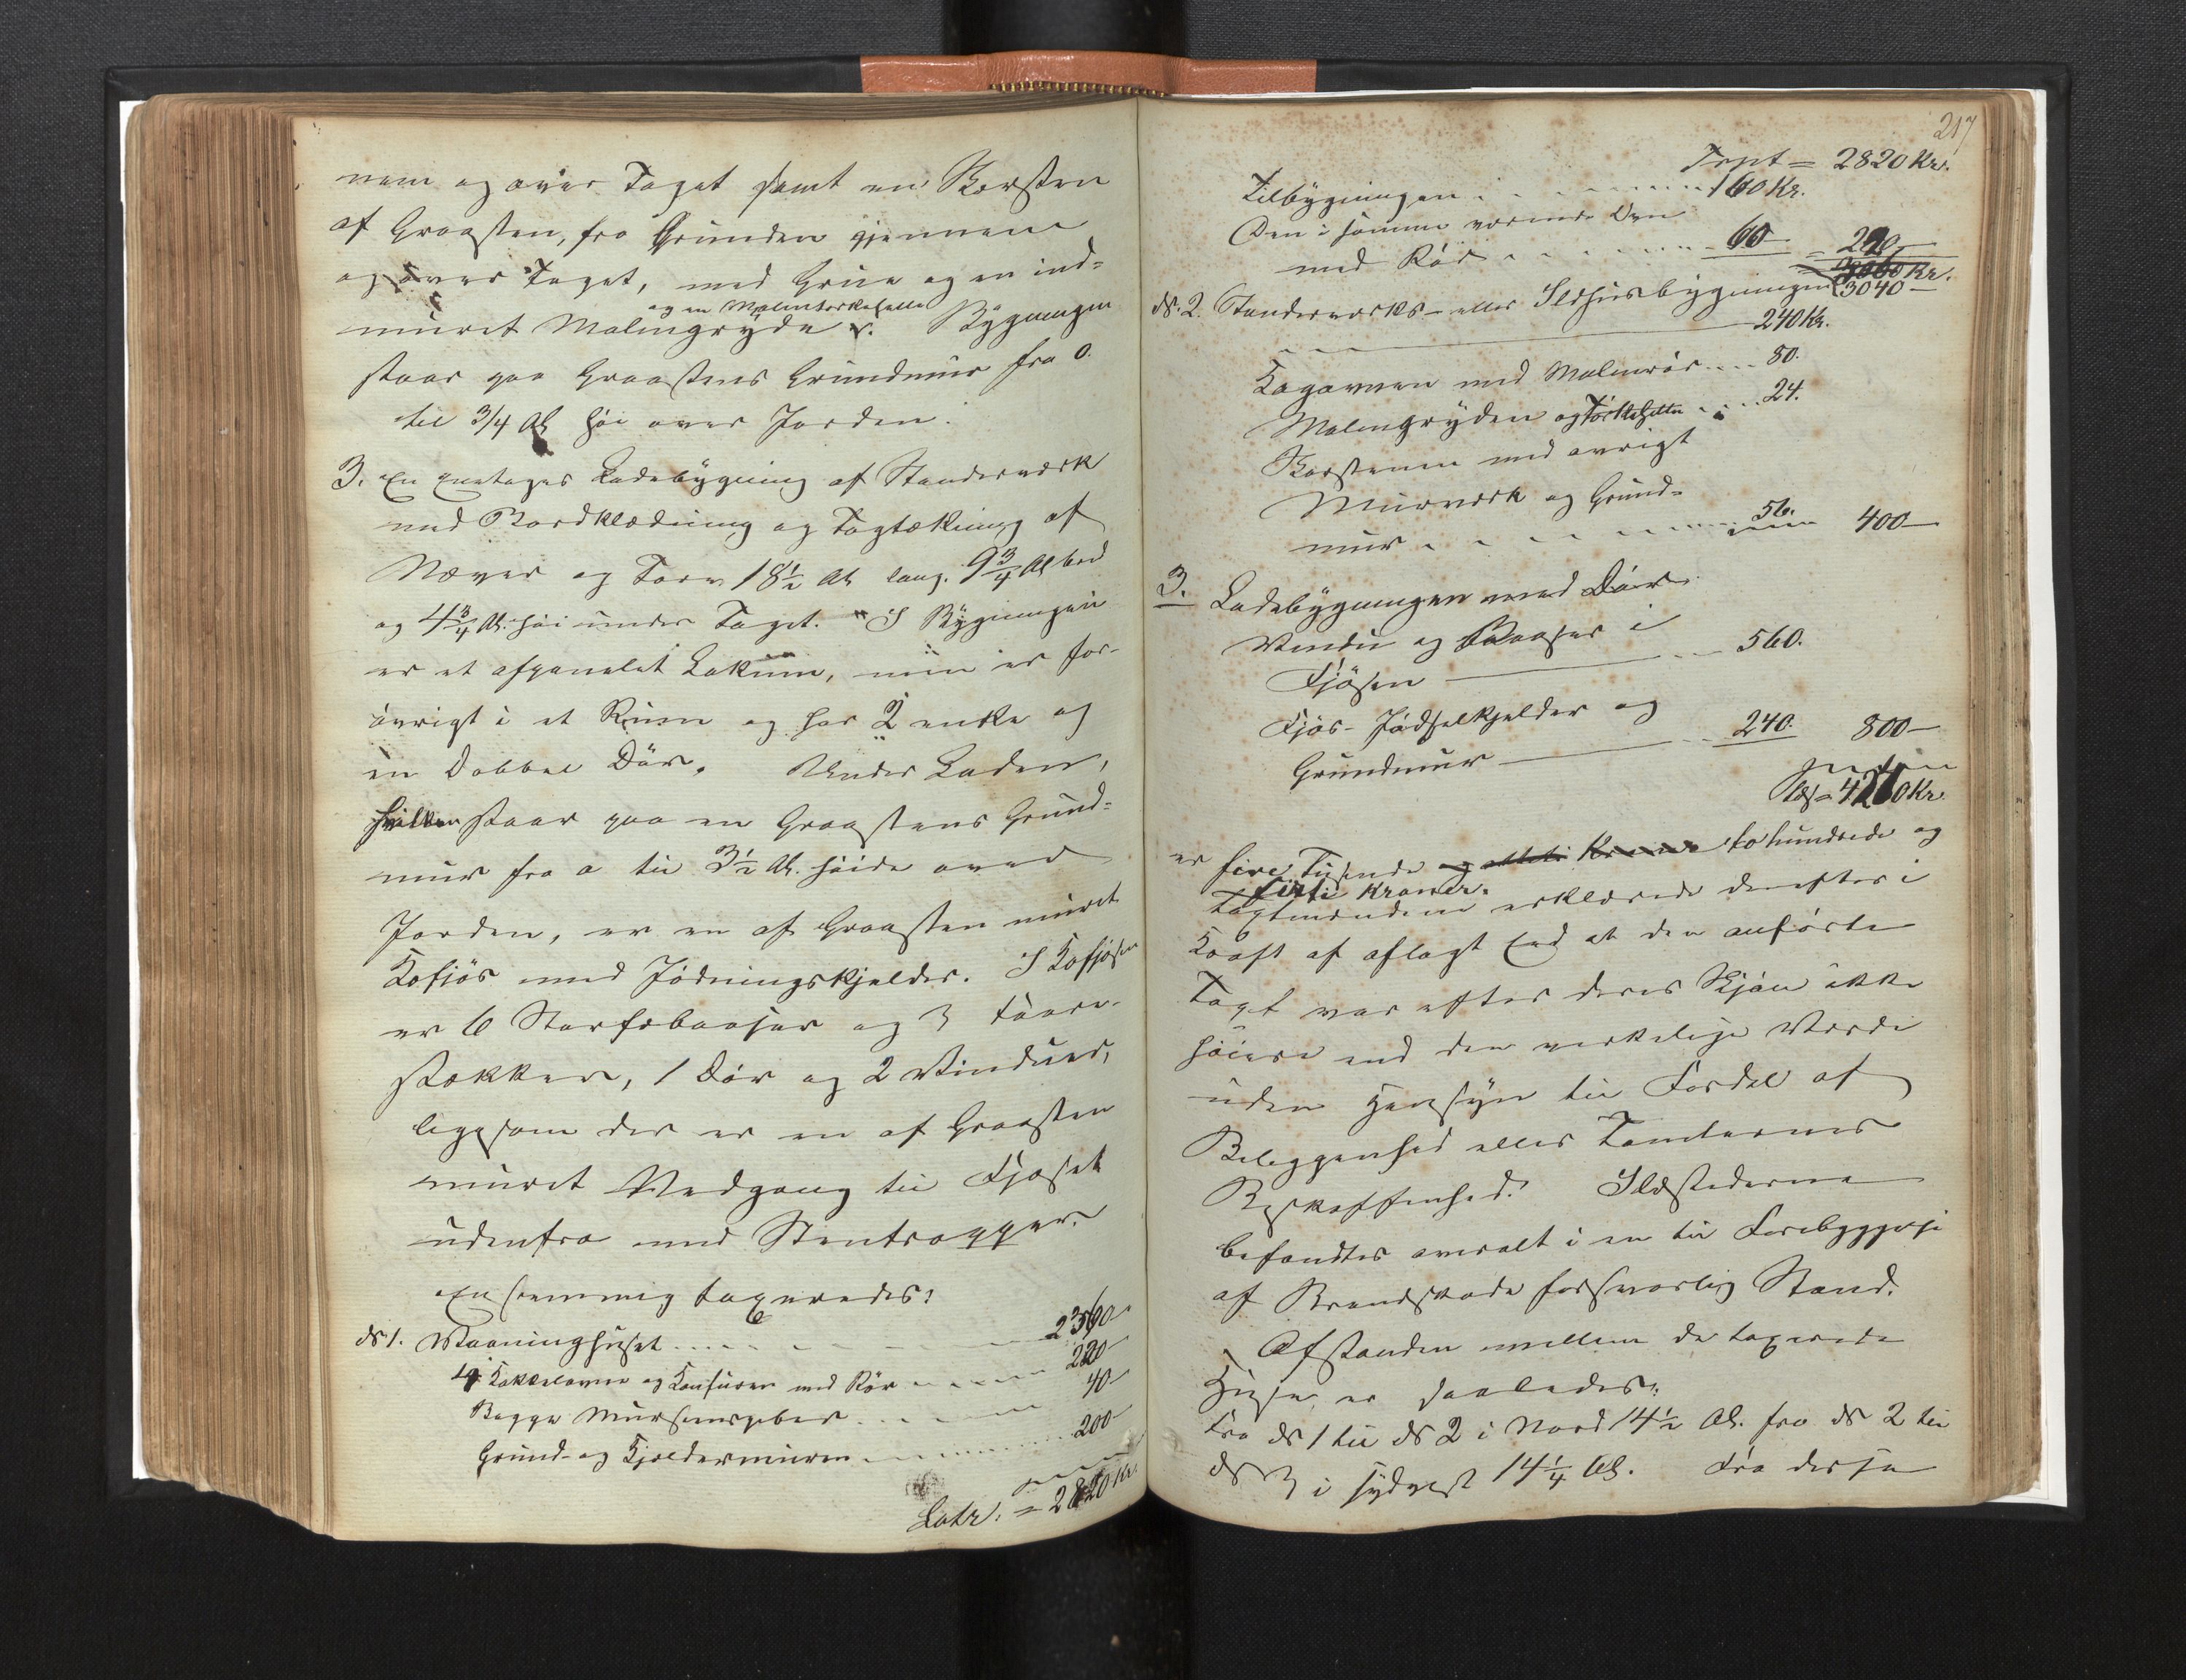 nem og over Taget samt en Skorsten
af Graasten, fra Grunden gjennem
og over Taget, med Grue og en ind-
og en Malmtørkehelle
muret Malmgryde. Bygningen
staar paa Graastens Grundmur fra 0.
til 3/4 Al. høi over Jorden.
3. En Enetages Ladebygning af Stenderværk
med Bordklædning og Tagtækning af
Næver og Torv 18 1/2 Al. lang. 9 3/4 Al. bred
og 4 3/4 Al. høi under Taget. I Bygningen
er et afpanelet Lokum, men er for-
øvrigt i et Rum og har 2 enkle og
en Dobbel Dör. Under Laden,
hvilken staar paa en Graastens Grund-
mur fra 0 til 3 1/2 Al. høide over
Jorden, er en af Graasten muret
Kofjös med Gjødningskjelder. I Kofjøsen
er 6 Storfebaaser og 3
stokker, 1 Dör og 2 Vinduer,
ligesom der er en af Graasten
muret Nedgang til Fjøset
udenfra med Stentrapper.
Enstemmig taxeredes:
No 1. Vaaninghuset 2360
4 Kakkelovne og Komfuren med Rör 220
Begge Murskorsteber 40
Grund- og Kjeldermuren 200
Latr. = 2820 Kr.
217
Trpt = 2820 Kr.
Tilbygningen 160 Kr.
Den i samme værende Ovn
med Rör 60 = 220
3060 Kr.
3040
No. 2. Stenderværks- eller Ildhusbygningen
240 Kr.
Kogeovnen med Malmrör 80.
Malmgryden og Törkehelle 24.
Skorstenen med øvrigt
Murværk og Grund-
mur 56. 400
3. Ladebygningen med Dör
Vindu og Baaser i
Fjösen 560.
Fjös- Gjødselkjelder og
Grundmur 240. 800
Tils = 4240 Kr
er fire Tusende og otteti Kroner tohundrede og
förti Kroner.
Taxtmændene erklærede derefter i
Kraft af aflagt Eed at den anførte
Taxt var efter deres Skjøn ikke
høiere end den virkelige Værdi
uden Hensyn til Fordel af
Beliggenhed eller Tomternes
Beskaffenhed. Ildstederne
befandtes overalt i en til Forebyggelse
af Brandskade forsvarlig Stand.
Afstanden mellem de taxerede
Huse er saaledes:
Fra No 1 til No 2 i Nord 14 1/2 Al. fra No 2 til
No 3 i sydvest 14 1/4 Al. Fra disse